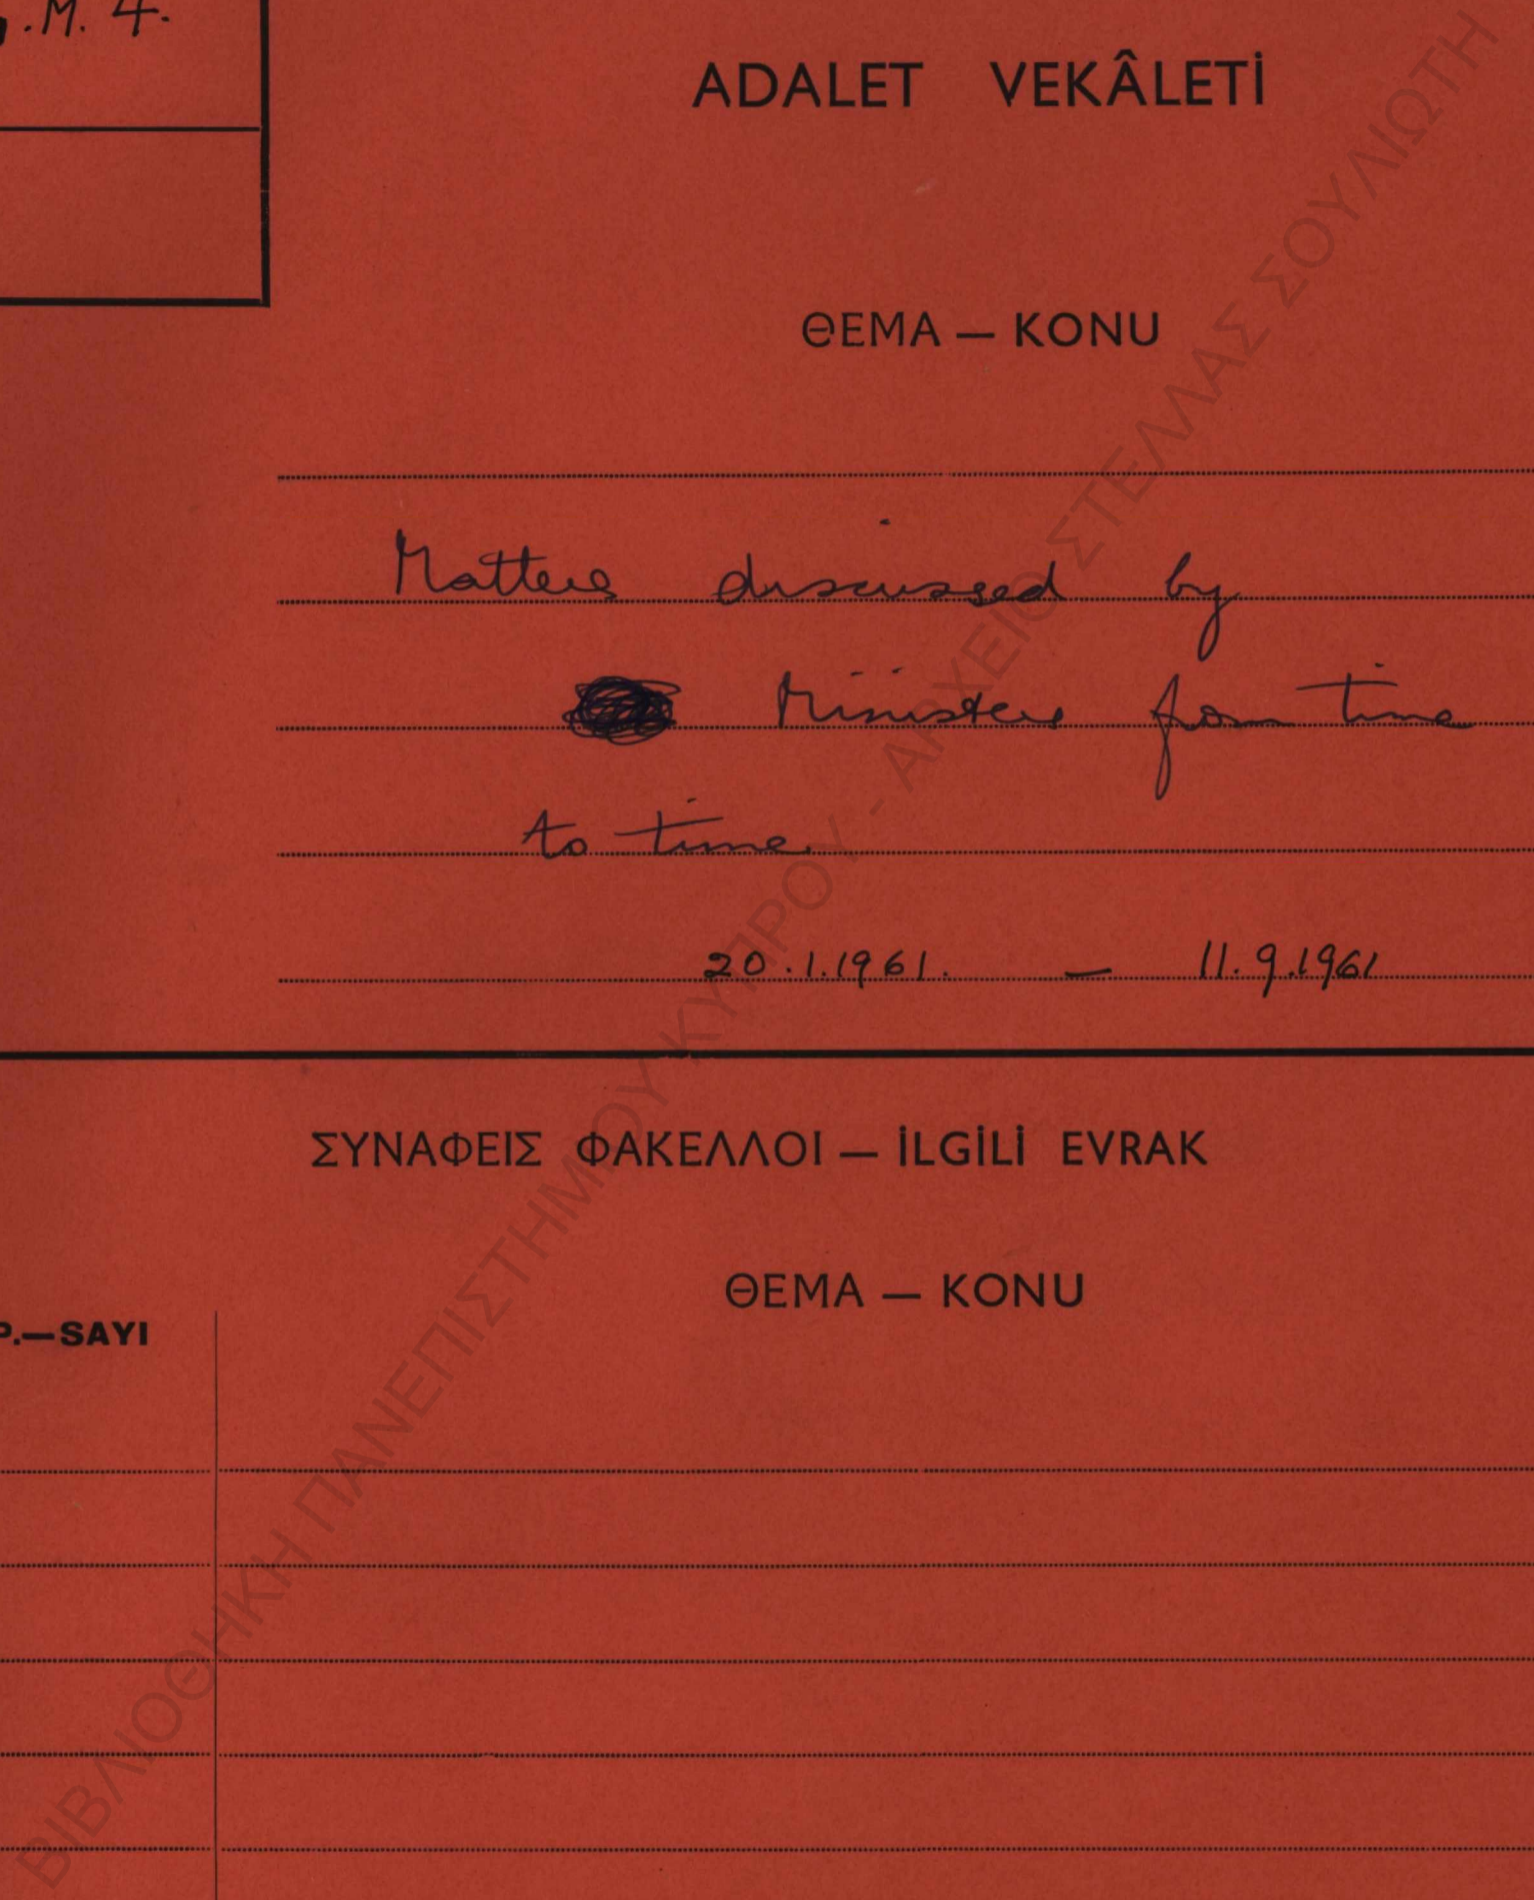 .M. 4.
ADALET VEKÂLETİ
ΘΕΜΑ — KONU
Matters discussed by
Ministers from time
to time.
20.1.1961. — 11.9.1961
ΣΥΝΑΦΕΙΣ ΦΑΚΕΛΛΟΙ — İLGİLİ EVRAK
ΘΕΜΑ — KONU
Ρ.—SAYI
ΒΙΒΛΙΟΘΗΚΗ ΠΑΝΕΠΙΣΤΗΜΙΟΥ ΚΥΠΡΟΥ - ΑΡΧΕΙΟ ΣΤΕΛΛΑΣ ΣΟΥΛΙΩΤΗ